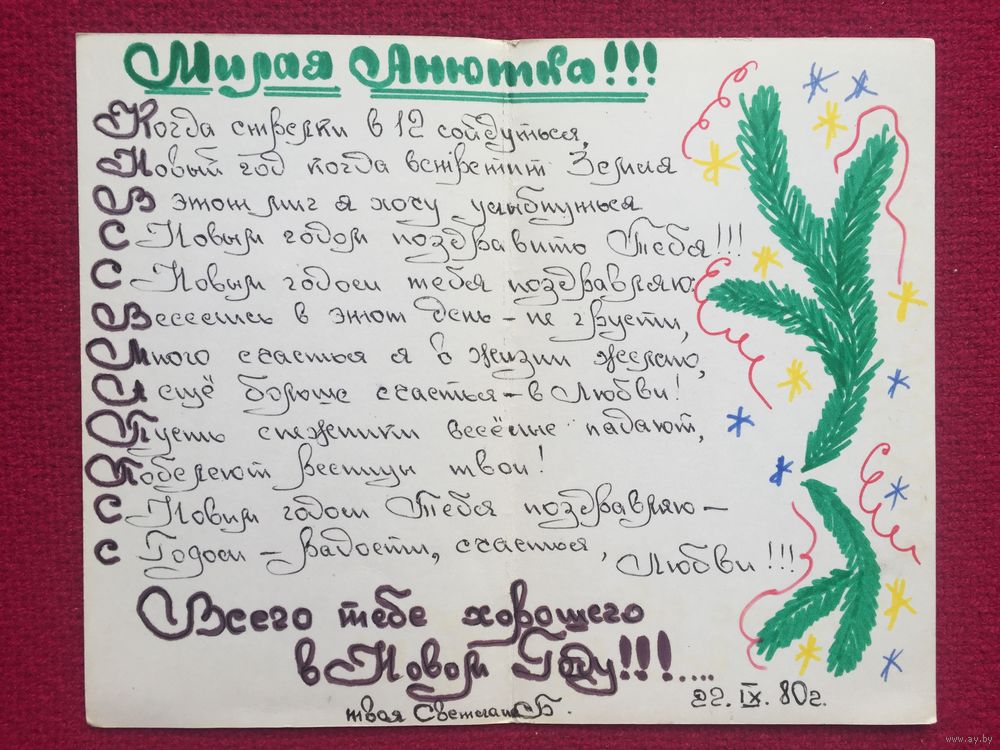 Милая Анютка!!!
Когда стрелки в 12 сойдуться,
Новый год когда встретит Земля
В этот миг я хочу улыбнуться
С Новым годом поздравить Тебя!!!
С Новым годом тебя поздравляю:
Веселись в этот день – не грусти,
Много счастья я в жизни желаю,
И ещё больше счастья – в Любви!
Пусть снежинки весёлые падают,
Побелеют ресницы твои!
С Новым годом Тебя поздравляю –
С Годом – радости, счастья, Любви!!!
Всего тебе хорошего
в Новом Году!!!....
твоя Светлана Б.
22. IX. 80г.
www.ay.by